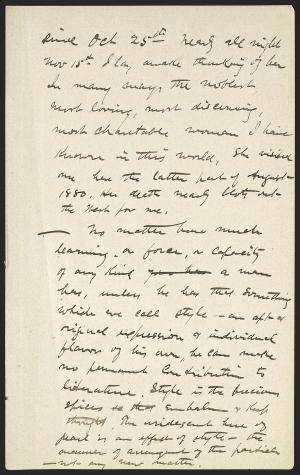 since Oct 25th Nearly all night
Nov 15th I lay awake thinking of her
In many ways the noblest
most loving, most discerning,
most charitable woman I have
known in this world, She visited
me here the latter part of August
1880. Her death nearly blots out
the West for me.
— No matter how much
learning, or force, or capacity
of any kind a man
has, unless he has that something
which we call style — an apt &
original expression & individual
flavor of his own, he can make
no permanent contribution to
literature. Style is the precious
spices that embalm & keep
thought. The iridescent hue of
pearl is an effect of style — the
manner of arrangement of the particles
— not any new matter.